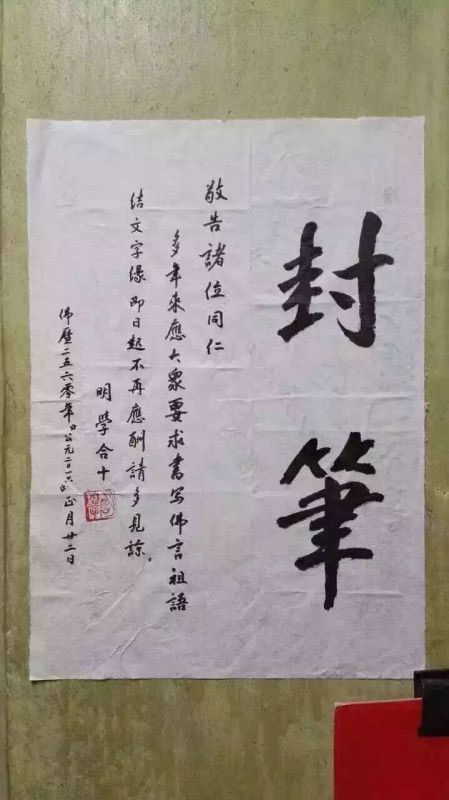 封筆
敬告諸位同仁
多年來應大眾要求書写佛言祖語
结文字缘即日起不再應酬請多見諒。
明學合十
佛曆二五六零年(公元二〇一六)正月廿二日